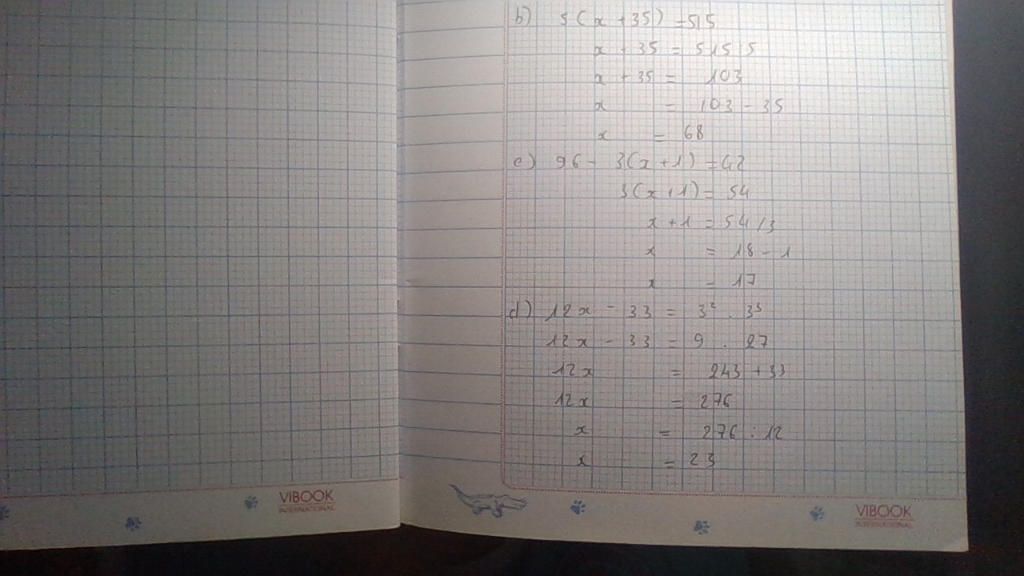 b) 5(x + 35) = 515
x + 35 = 515 : 5
x + 35 = 103
x = 103 - 35
x = 68
c) 96 - 3(x + 1) = 42
3(x + 1) = 54
x + 1 = 54 / 3
x = 18 - 1
x = 17
d) 12x - 33 = 3² . 3³
12x - 33 = 9 . 27
12x = 243 + 33
12x = 276
x = 276 : 12
x = 23
VIBOOK
INTERNATIONAL
VIBOOK
INTERNATIONAL